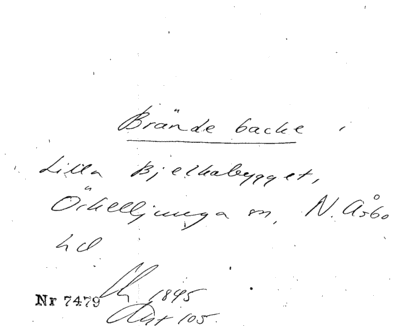 Brände backe,
Lilla Bjelkabygget,
Örkelljunga sn, N. Åsbo
hd
Nr 7479 1845
105.